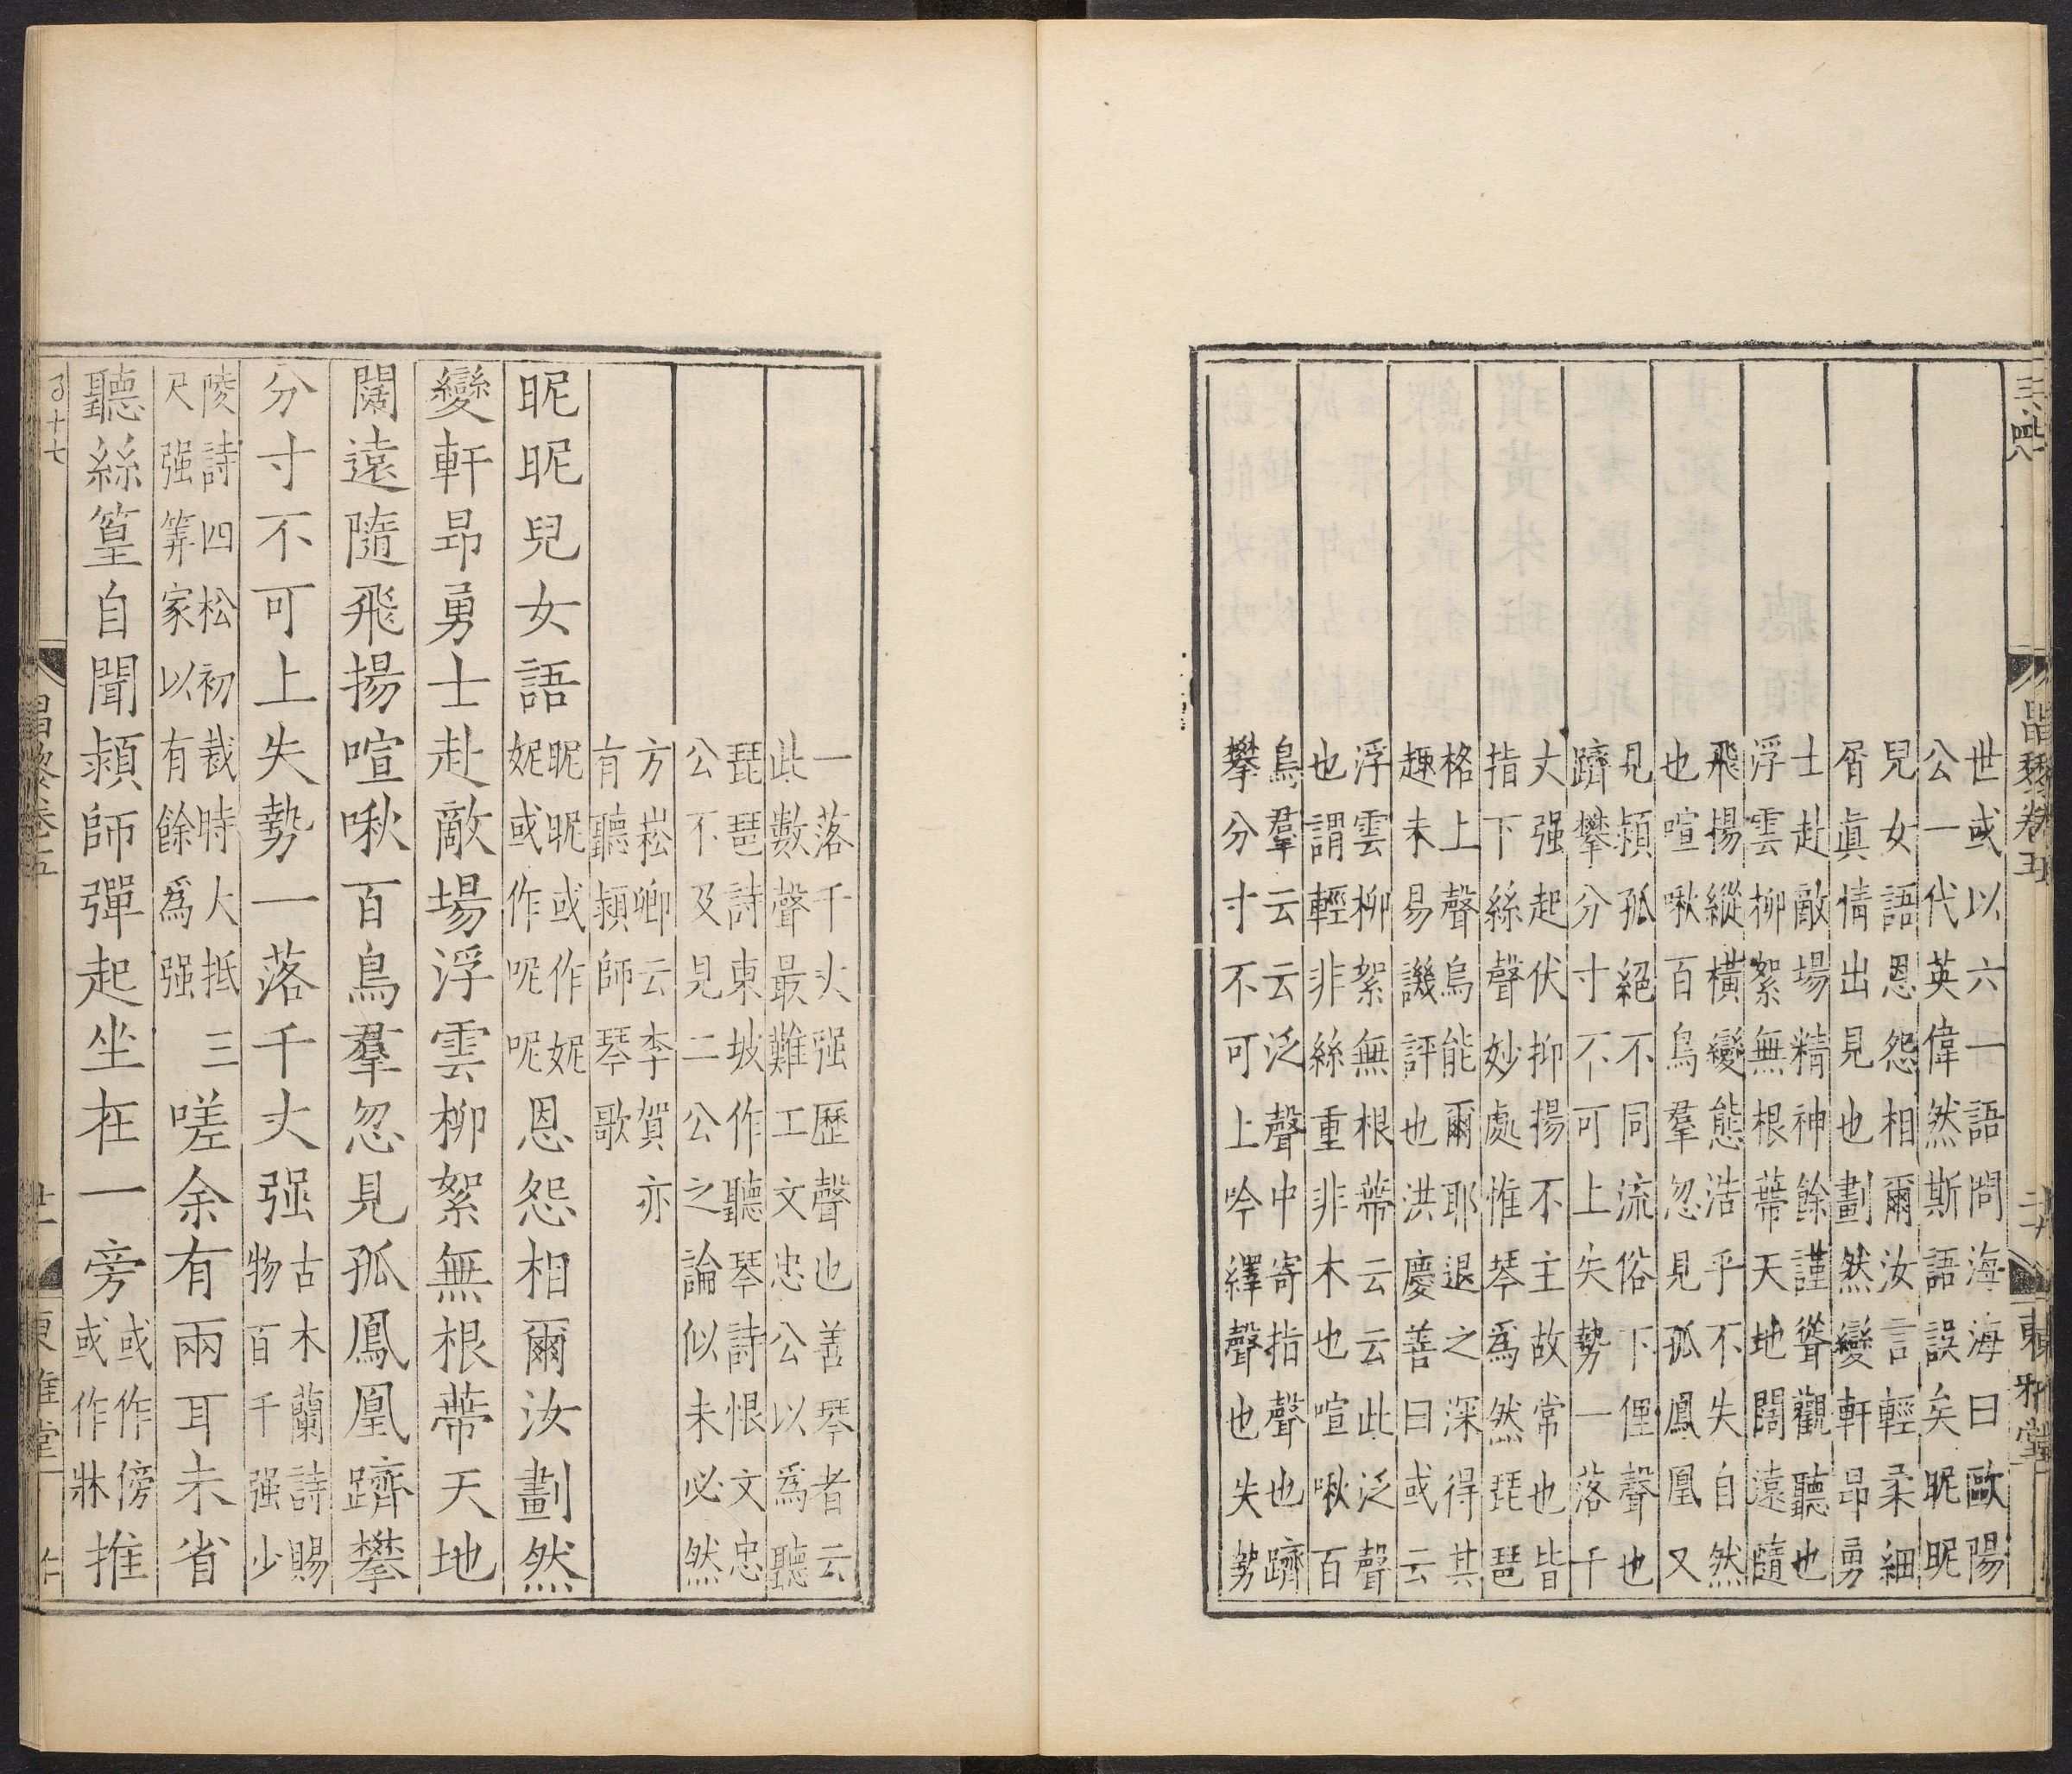 世或以六一語問海海曰歐陽
公一代英偉然斯語誤矣昵昵
兒女語恩怨相爾汝言輕柔細
屑眞情出見也劃然變軒昂勇
士赴敵場精神餘謹聳觀聽也
浮雲柳絮無根蔕天地闊遠隨
飛揚縱橫變態浩乎不失自然
也喧啾百鳥羣忽見孤鳳凰又
見頴孤絕不同流俗下俚聲也
躋攀分寸不可上失勢一落千
丈强起伏抑揚不主故常也皆
指下絲聲妙處惟琴爲然琵琶
格上聲烏能爾耶退之深得其
趣未易譏評也洪慶善曰或云
浮雲柳絮無根蔕云云此泛聲
也謂輕非絲重非木也喧啾百
鳥羣云云泛聲中寄指聲也躋
攀分寸不可上吟繹聲也失勢
一落千丈强歷聲也善琴者云
此數聲最難工文忠公以爲聽
琵琶詩東坡作聽琴詩恨文忠
公不及見二公之論似未必然
方崧卿云李賀亦
有聽頴師琴歌
昵昵兒女語昵昵或作妮妮或作呢呢恩怨相爾汝劃然
變軒昂勇士赴敵場浮雲柳絮無根蔕天地
闊遠隨飛揚喧啾百鳥羣忽見孤鳳凰躋攀
分寸不可上失勢一落千丈强古木蘭詩賜物百千强少
陵詩四松初栽時大抵三尺强筭家以有餘爲强嗟余有兩耳未省
聽絲篁自聞頴師彈起坐在一旁或作傍或作牀推
昌黎卷五
東雅堂